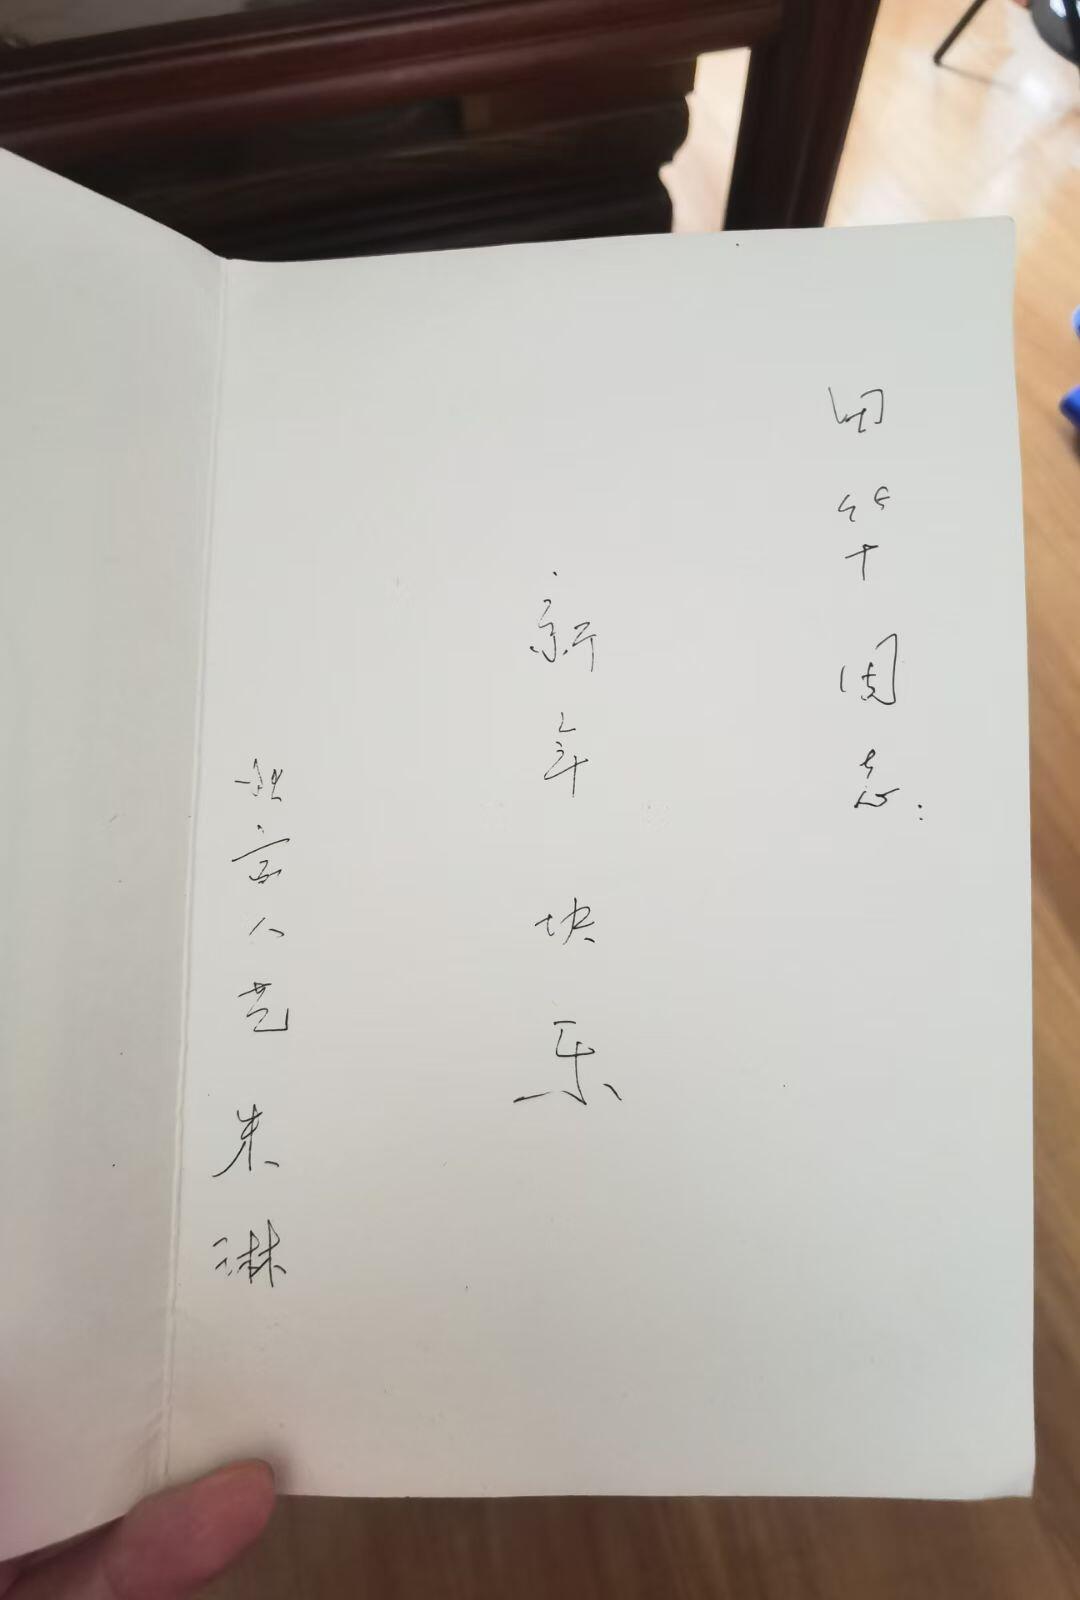 田华同志:
新年快乐
北京人艺 朱琳